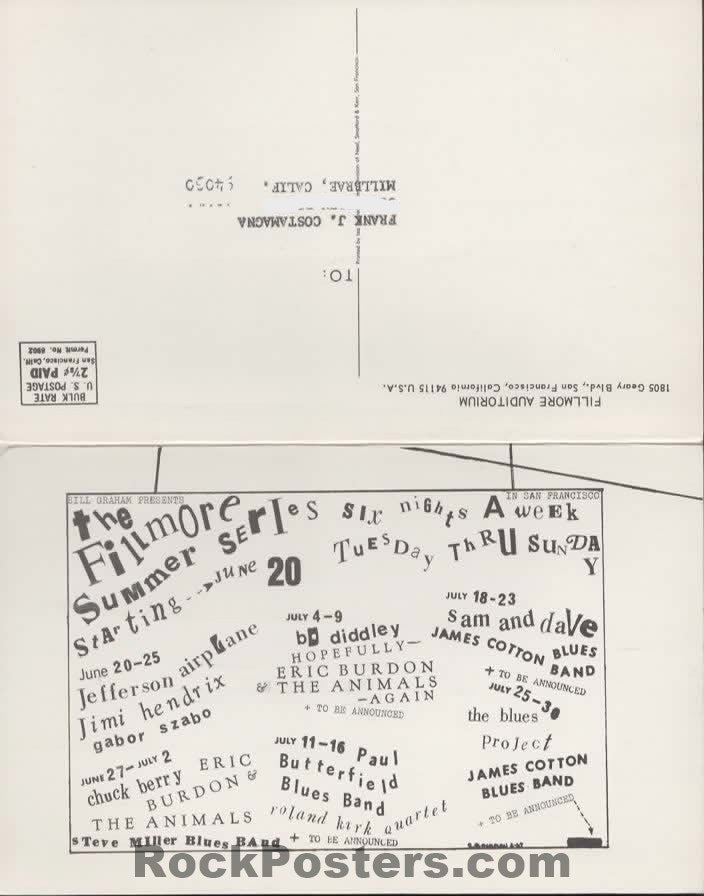 MILLBRAE, CALIF. 94030
FRANK J. COSTAMAGNA
TO:
BULK RATE
U. S. POSTAGE
2⅞¢ PAID
San Francisco, Calif.
Permit No. 8902
FILLMORE AUDITORIUM
1805 Geary Blvd., San Francisco, California 94115 U.S.A.
BILL GRAHAM PRESENTS
IN SAN FRANCISCO
the
Fillmore
Summer SERIeS
StArting--->JUNE 20
SIx niGhts A weEk
TuESDay ThRU SuNDAY
June 20-25
Jefferson airpLane
Jimi hendrix
gabor szabo
JUNE 27- JULY 2
chuck berry ERIC
BURDON &
THE ANIMALS
sTeve MIller Blues BAnd
JULY 4-9
bo diddley
HOPEFULLY—
ERIC BURDON
& THE ANIMALS
—AGAIN
+ TO BE ANNOUNCED
JULY 11-16 Paul
Butterfield
Blues Band
roland kirk quartet
+ TO BE ANNOUNCED
JULY 18-23
sam and daVe
JAMES COTTON BLUES
BAND
+ TO BE ANNOUNCED
JULY 25-30
the blues
ProJect
JAMES COTTON
BLUES BAND
+ TO BE ANNOUNCED
RockPosters.com